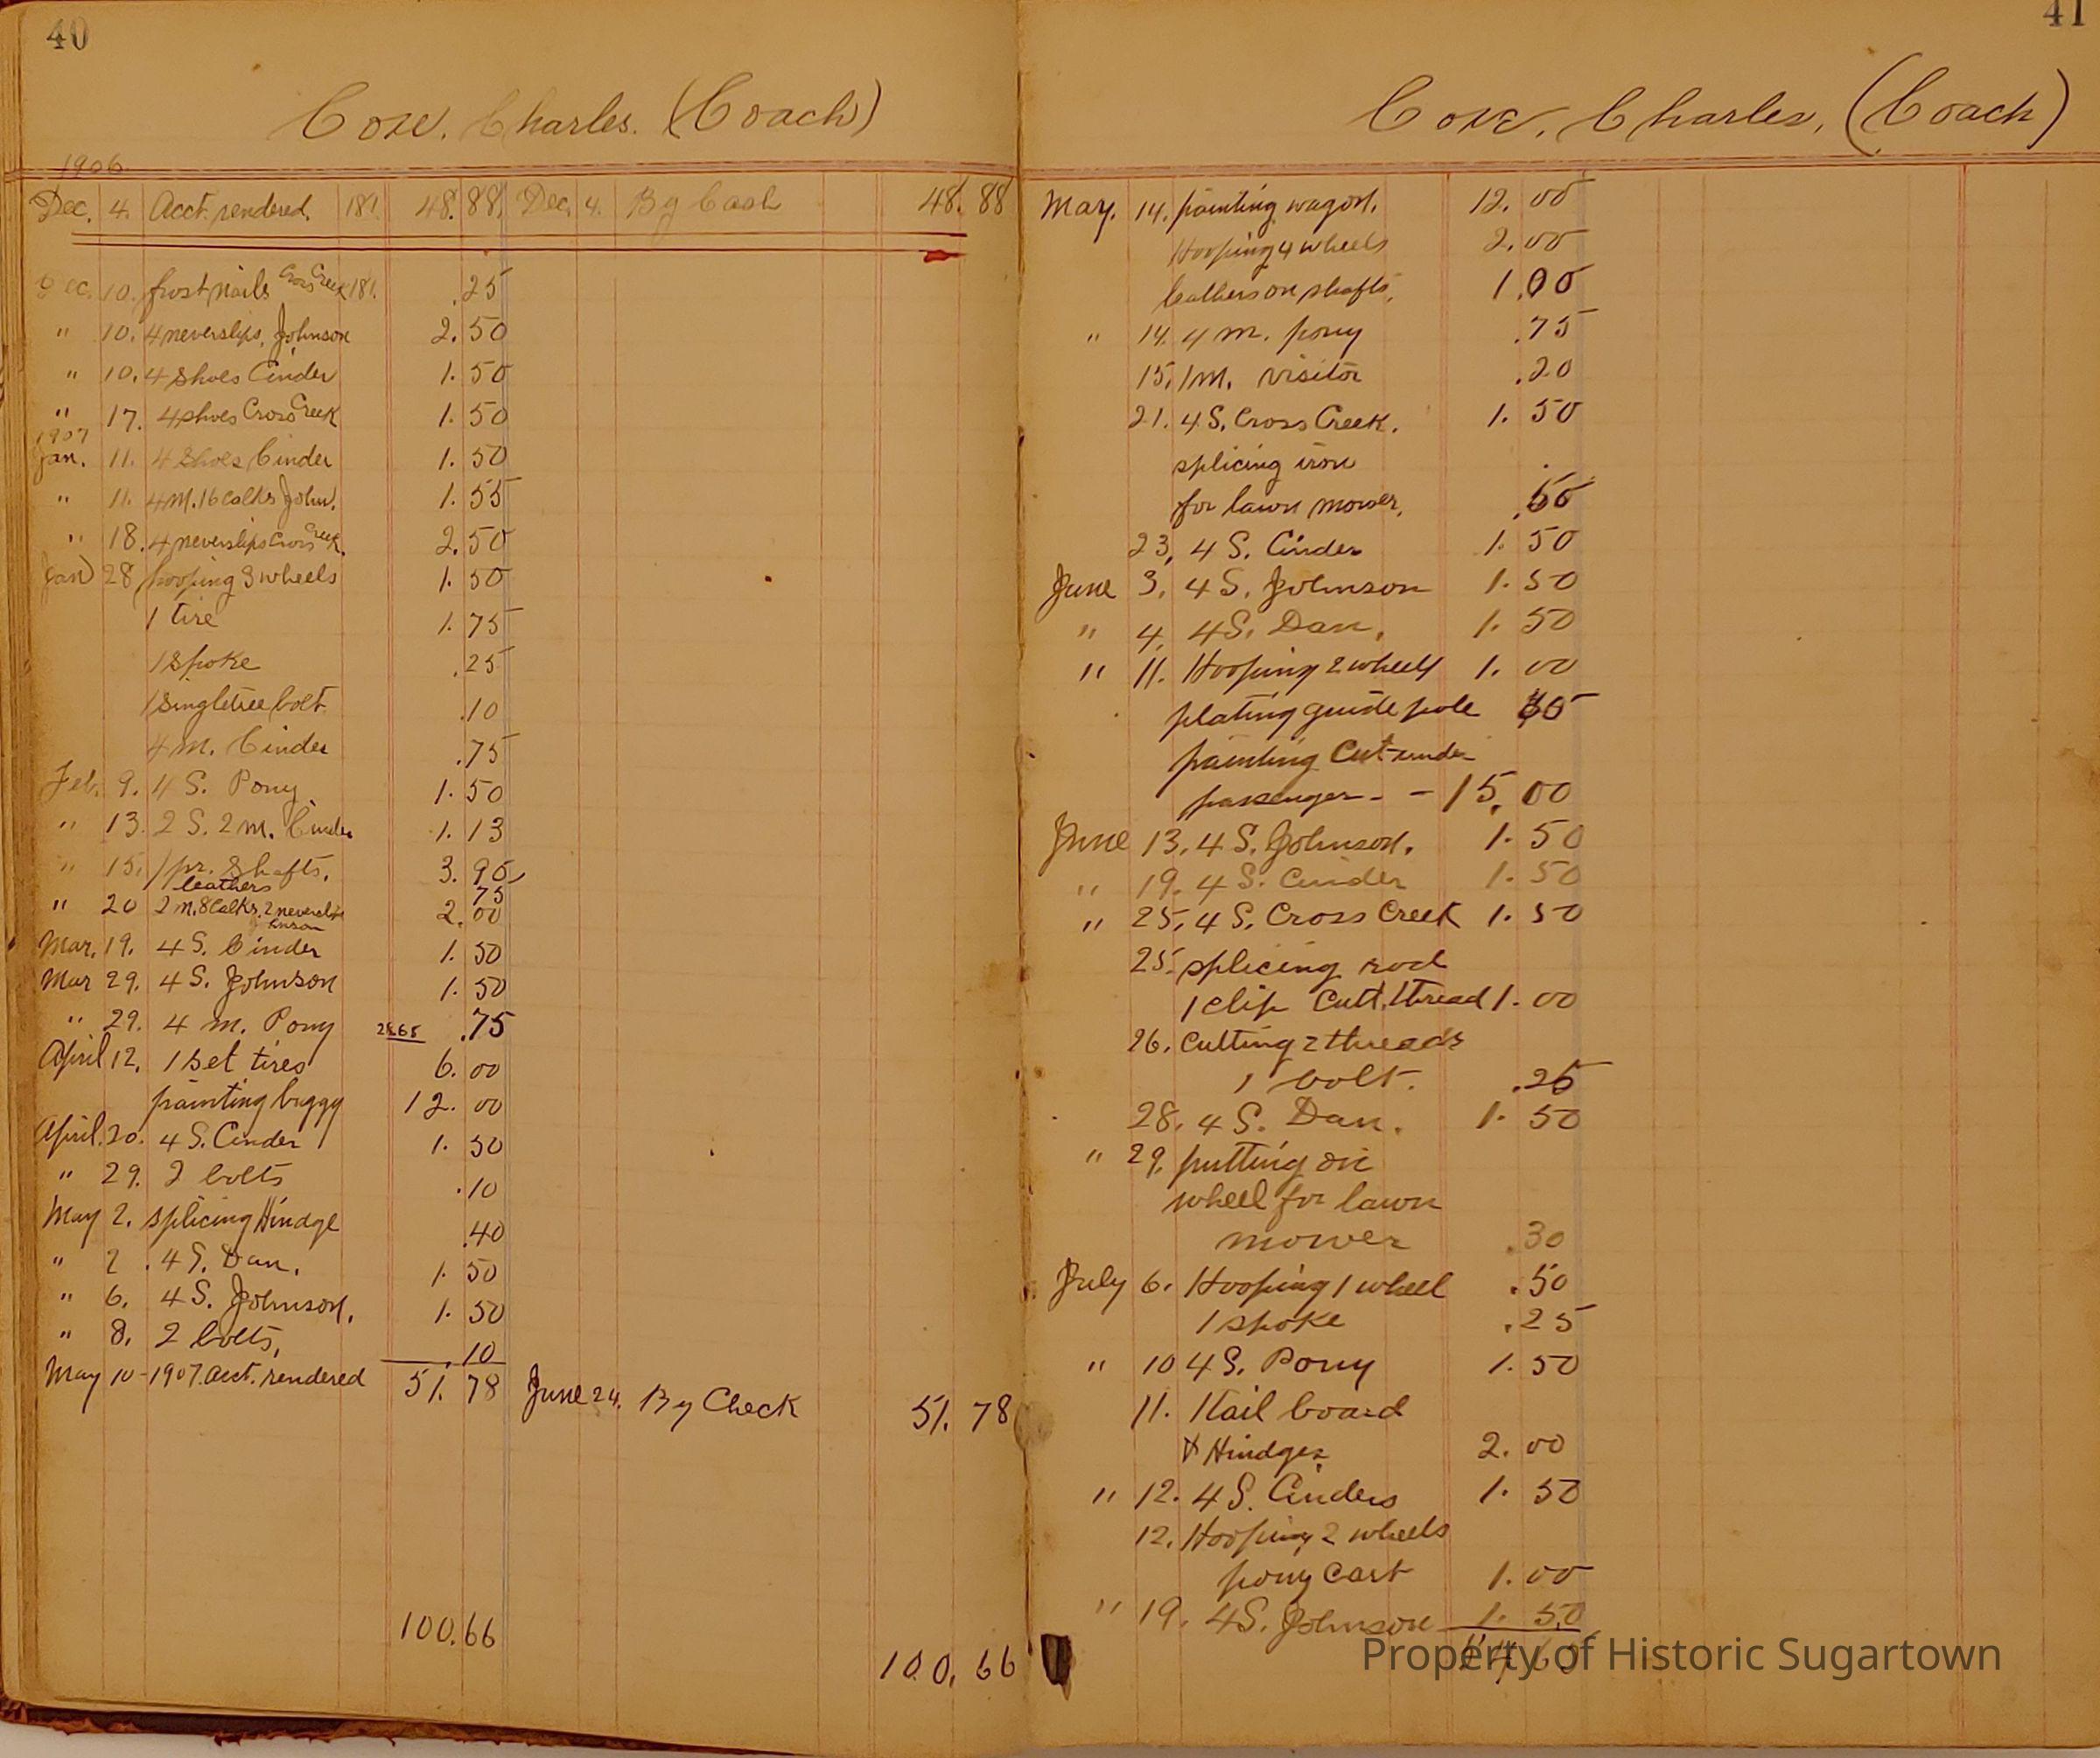 40
Coxe, Charles. (Coach)
1906
Dec. 4. Acct. rendered. 181. 48.88 Dec. 4. By Cash 48.88
Dec. 10. frost nails Cross Creek 181. .25
" 10. 4 neverslips, Johnson 2.50
" 10. 4 Shoes Cinder 1.50
" 17. 4 shoes Cross Creek 1.50
1907
Jan. 11. 4 Shoes Cinder 1.50
" 11. 4 M. 16 Calks John. 1.55
" 18. 4 neverslips Cross Creek. 2.50
Jan 28 hooping 3 wheels 1.50
1 tire 1.75
1 Spoke .25
1 Singletree bolt .10
4 m. Cinder .75
Feb. 9. 4 S. Pony 1.50
" 13. 2 S. 2 m. Cinder 1.13
" 15. 1 pr. Shafts. 3.90
leathers 75
" 20 2 M. 8 Calks. 2 2.00
Mar. 19. 4 S. Cinder 1.50
Mar 29. 4 S. Johnson 1.50
" 29. 4 m. Pony .75
April 12. 1 set tires 6.00
painting buggy 12.00
April. 20. 4 S. Cinder 1.50
" 29. 2 bolts .10
May 2. splicing Hindge .40
" 2. 4 S. Dan. 1.50
" 6. 4 S. Johnson. 1.50
" 8. 2 bolts, .10
May 10-1907. acct. rendered 51.78 June 24. By Check 51.78
100.66
100.66
41
Coxe, Charles, (Coach)
May. 14. painting wagon. 12.00
Hooping 4 wheels 2.00
leathers on shafts, 1.00
" 14. 4 m. pony .75
15. 1 m. visitor .20
21. 4 S. Cross Creek. 1.50
splicing iron
for lawn mower, .50
23. 4 S. Cinder 1.50
June 3. 4 S. Johnson 1.50
" 4. 4 S. Dan. 1.50
" 11. Hooping 2 wheels 1.00
plating guide pole
painting Cut-under
passenger - - 15.00
June 13. 4 S. Johnson. 1.50
" 19. 4 S. Cinder 1.50
" 25. 4 S. Cross Creek 1.50
25. splicing rod
1 clip Cutt. thread 1.00
26. Cutting 2 threads
1 bolt. .25
28. 4 S. Dan. 1.50
" 29. putting on
wheel for lawn
mower .30
July 6. Hooping 1 wheel .50
1 spoke .25
" 10 4 S. Pony 1.50
11. 1 tail board
& Hindges 2.00
" 12. 4 S. Cinders 1.50
12. Hooping 2 wheels
pony Cart 1.00
" 19. 4 S. Johnson 1.50
Property of Historic Sugartown